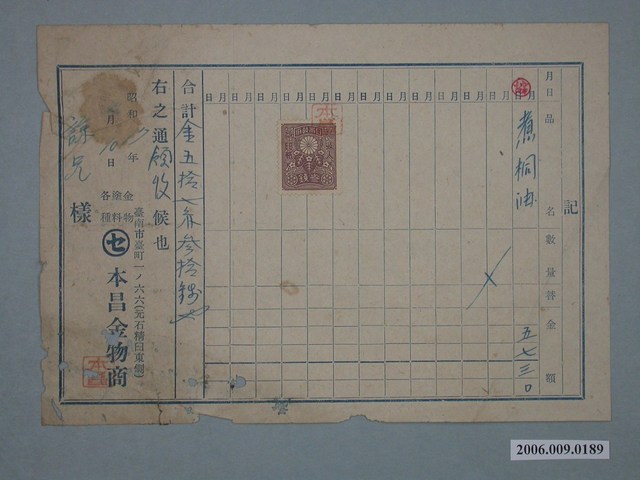 記
月日 品名 數量 替 金額
煮桐油 五七三〇
月日 月日 月日 月日 月日 月日 月日 月日 月日 月日 月日 月日 月日
合計金五拾七券參拾錢
右之通領收候也
昭和 年 月10日
樣
金物 塗料 各種
臺南市臺町一ノ六六(元石精臼東側)
セ 本昌金物商
本昌
2006.009.0189